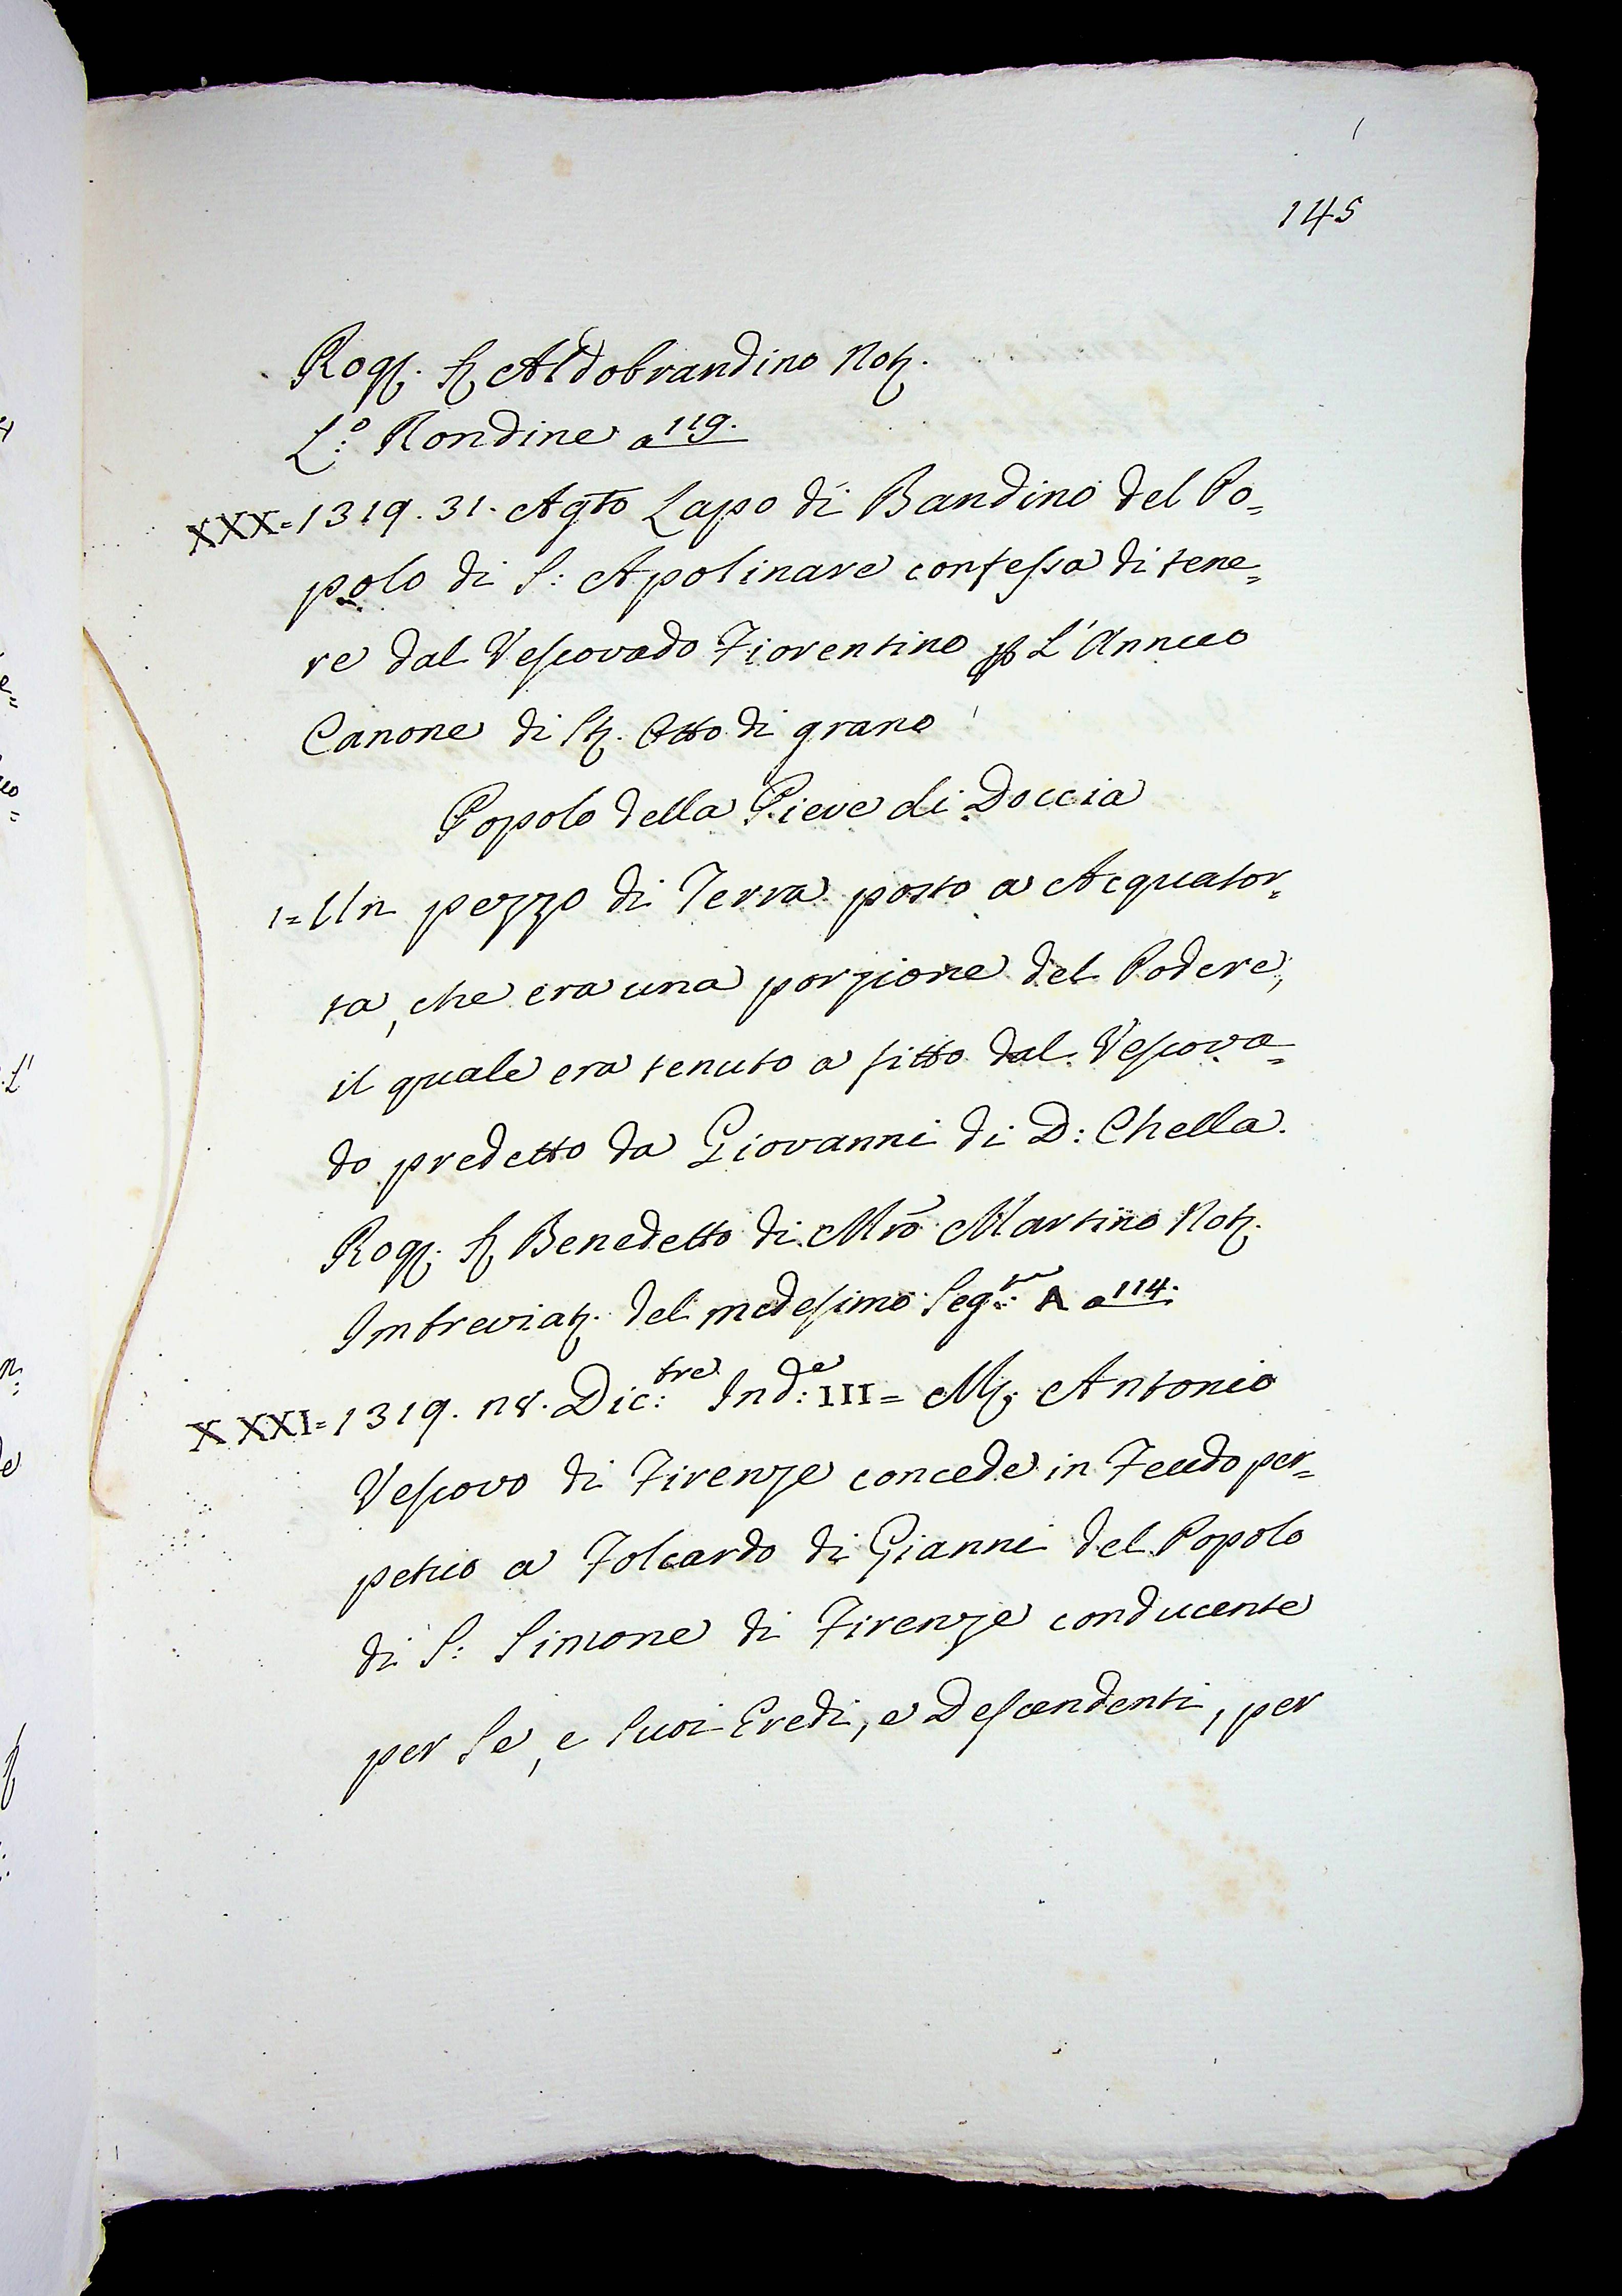 145
Rog. S. Aldobrandino Not.
L.º Rondine a 119.
XXX= 1319. 31. Agto Lapo di Bandino del Po=
polo di S: Apolinare confessa di tene=
re dal Vescovado Fiorentino p L'Annuo
Canone di St. Otto di grano
Popolo della Pieve di Doccia
1= Un pezzo di Terra posto a Acquator=
ta, che era una porzione del Podere,
il quale era tenuto a fitto dal Vescova=
do predetto da Giovanni di D: Chella.
Rog. S. Benedetto di Mro Martino Not.
Imbreviat. del medesimo Seg: A a 114.
XXXI= 1319. Dic:bre Ind:e III= M. Antonio
Vescovo di Firenze concede in Feudo per=
petuo a Folcardo di Gianni del Popolo
di S: Simone di Firenze conducente
per Se, e Suoi Eredi, e Descendenti, per